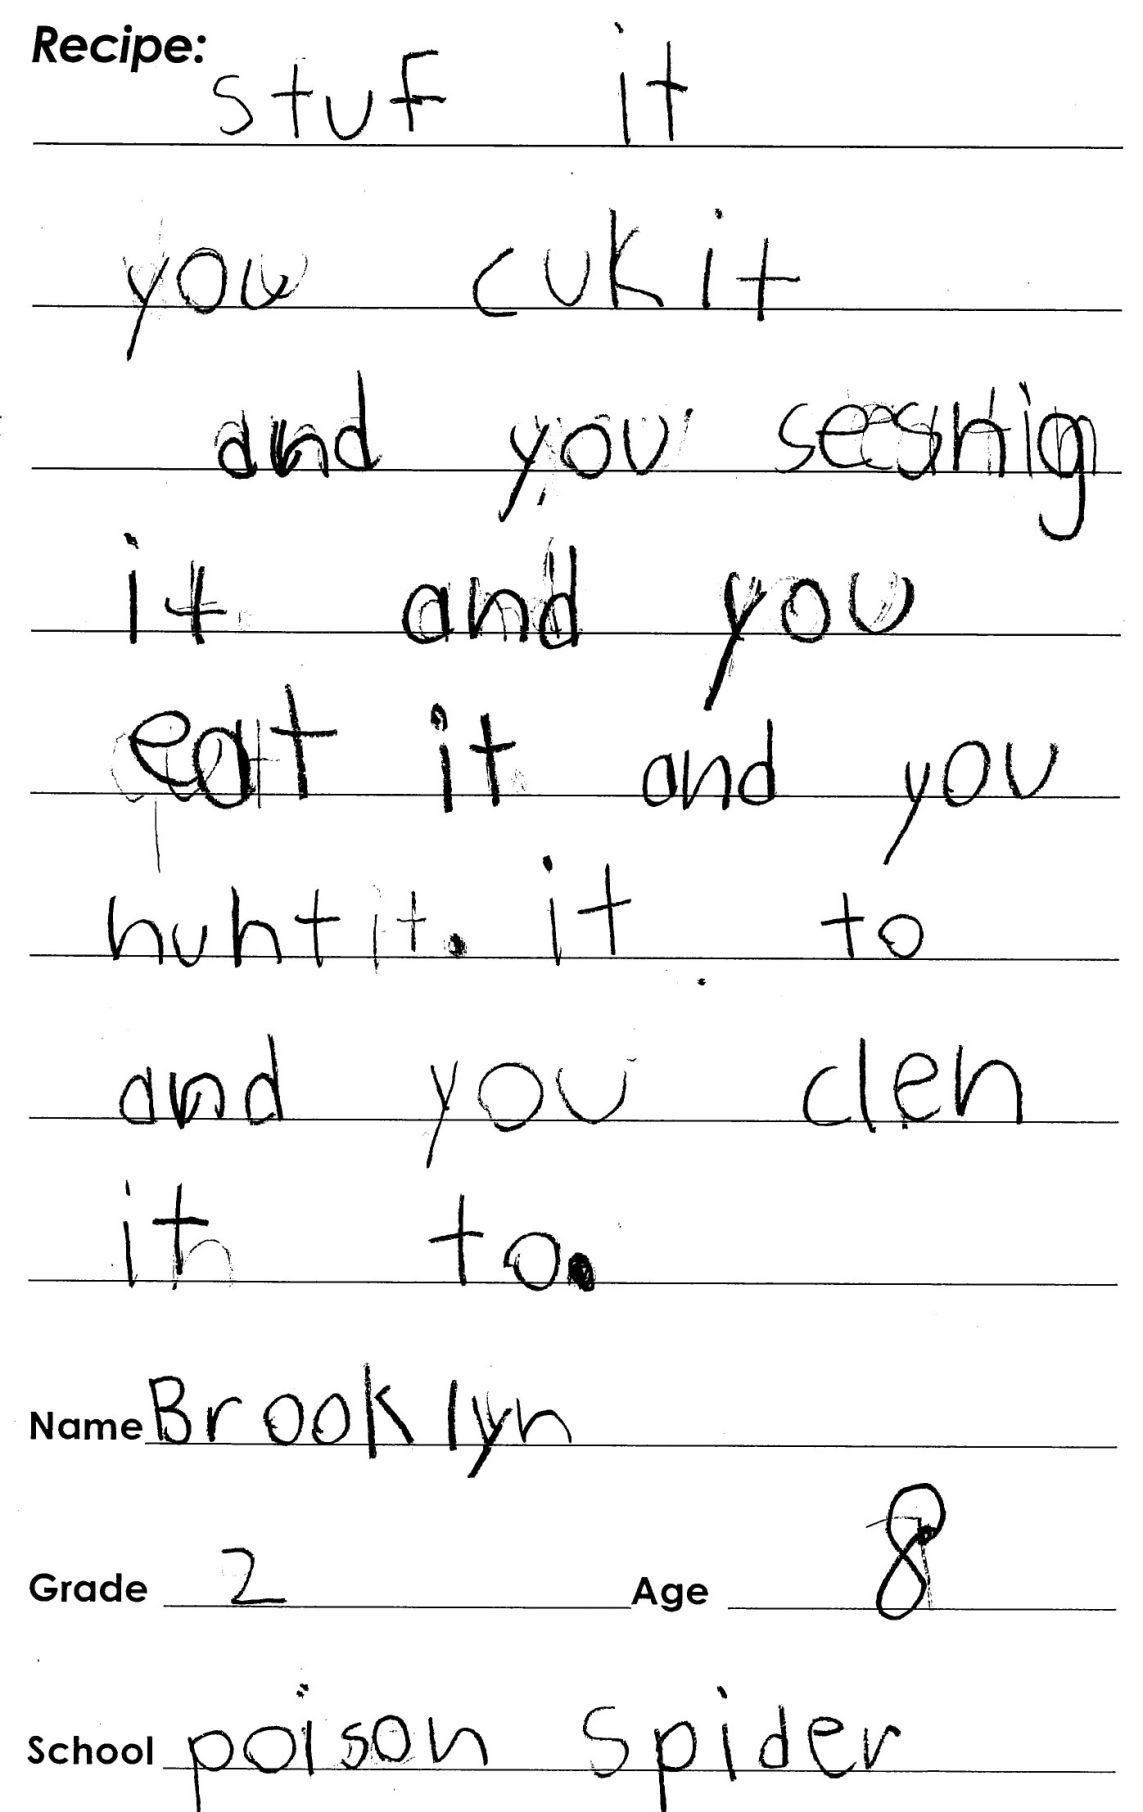 Recipe:
stuf it
you cuk it
and you seeshig
it and you
eat it and you
huht it. it to
and you clen
it to.
Name Brooklyn
Grade 2 Age 8
School poison Spider